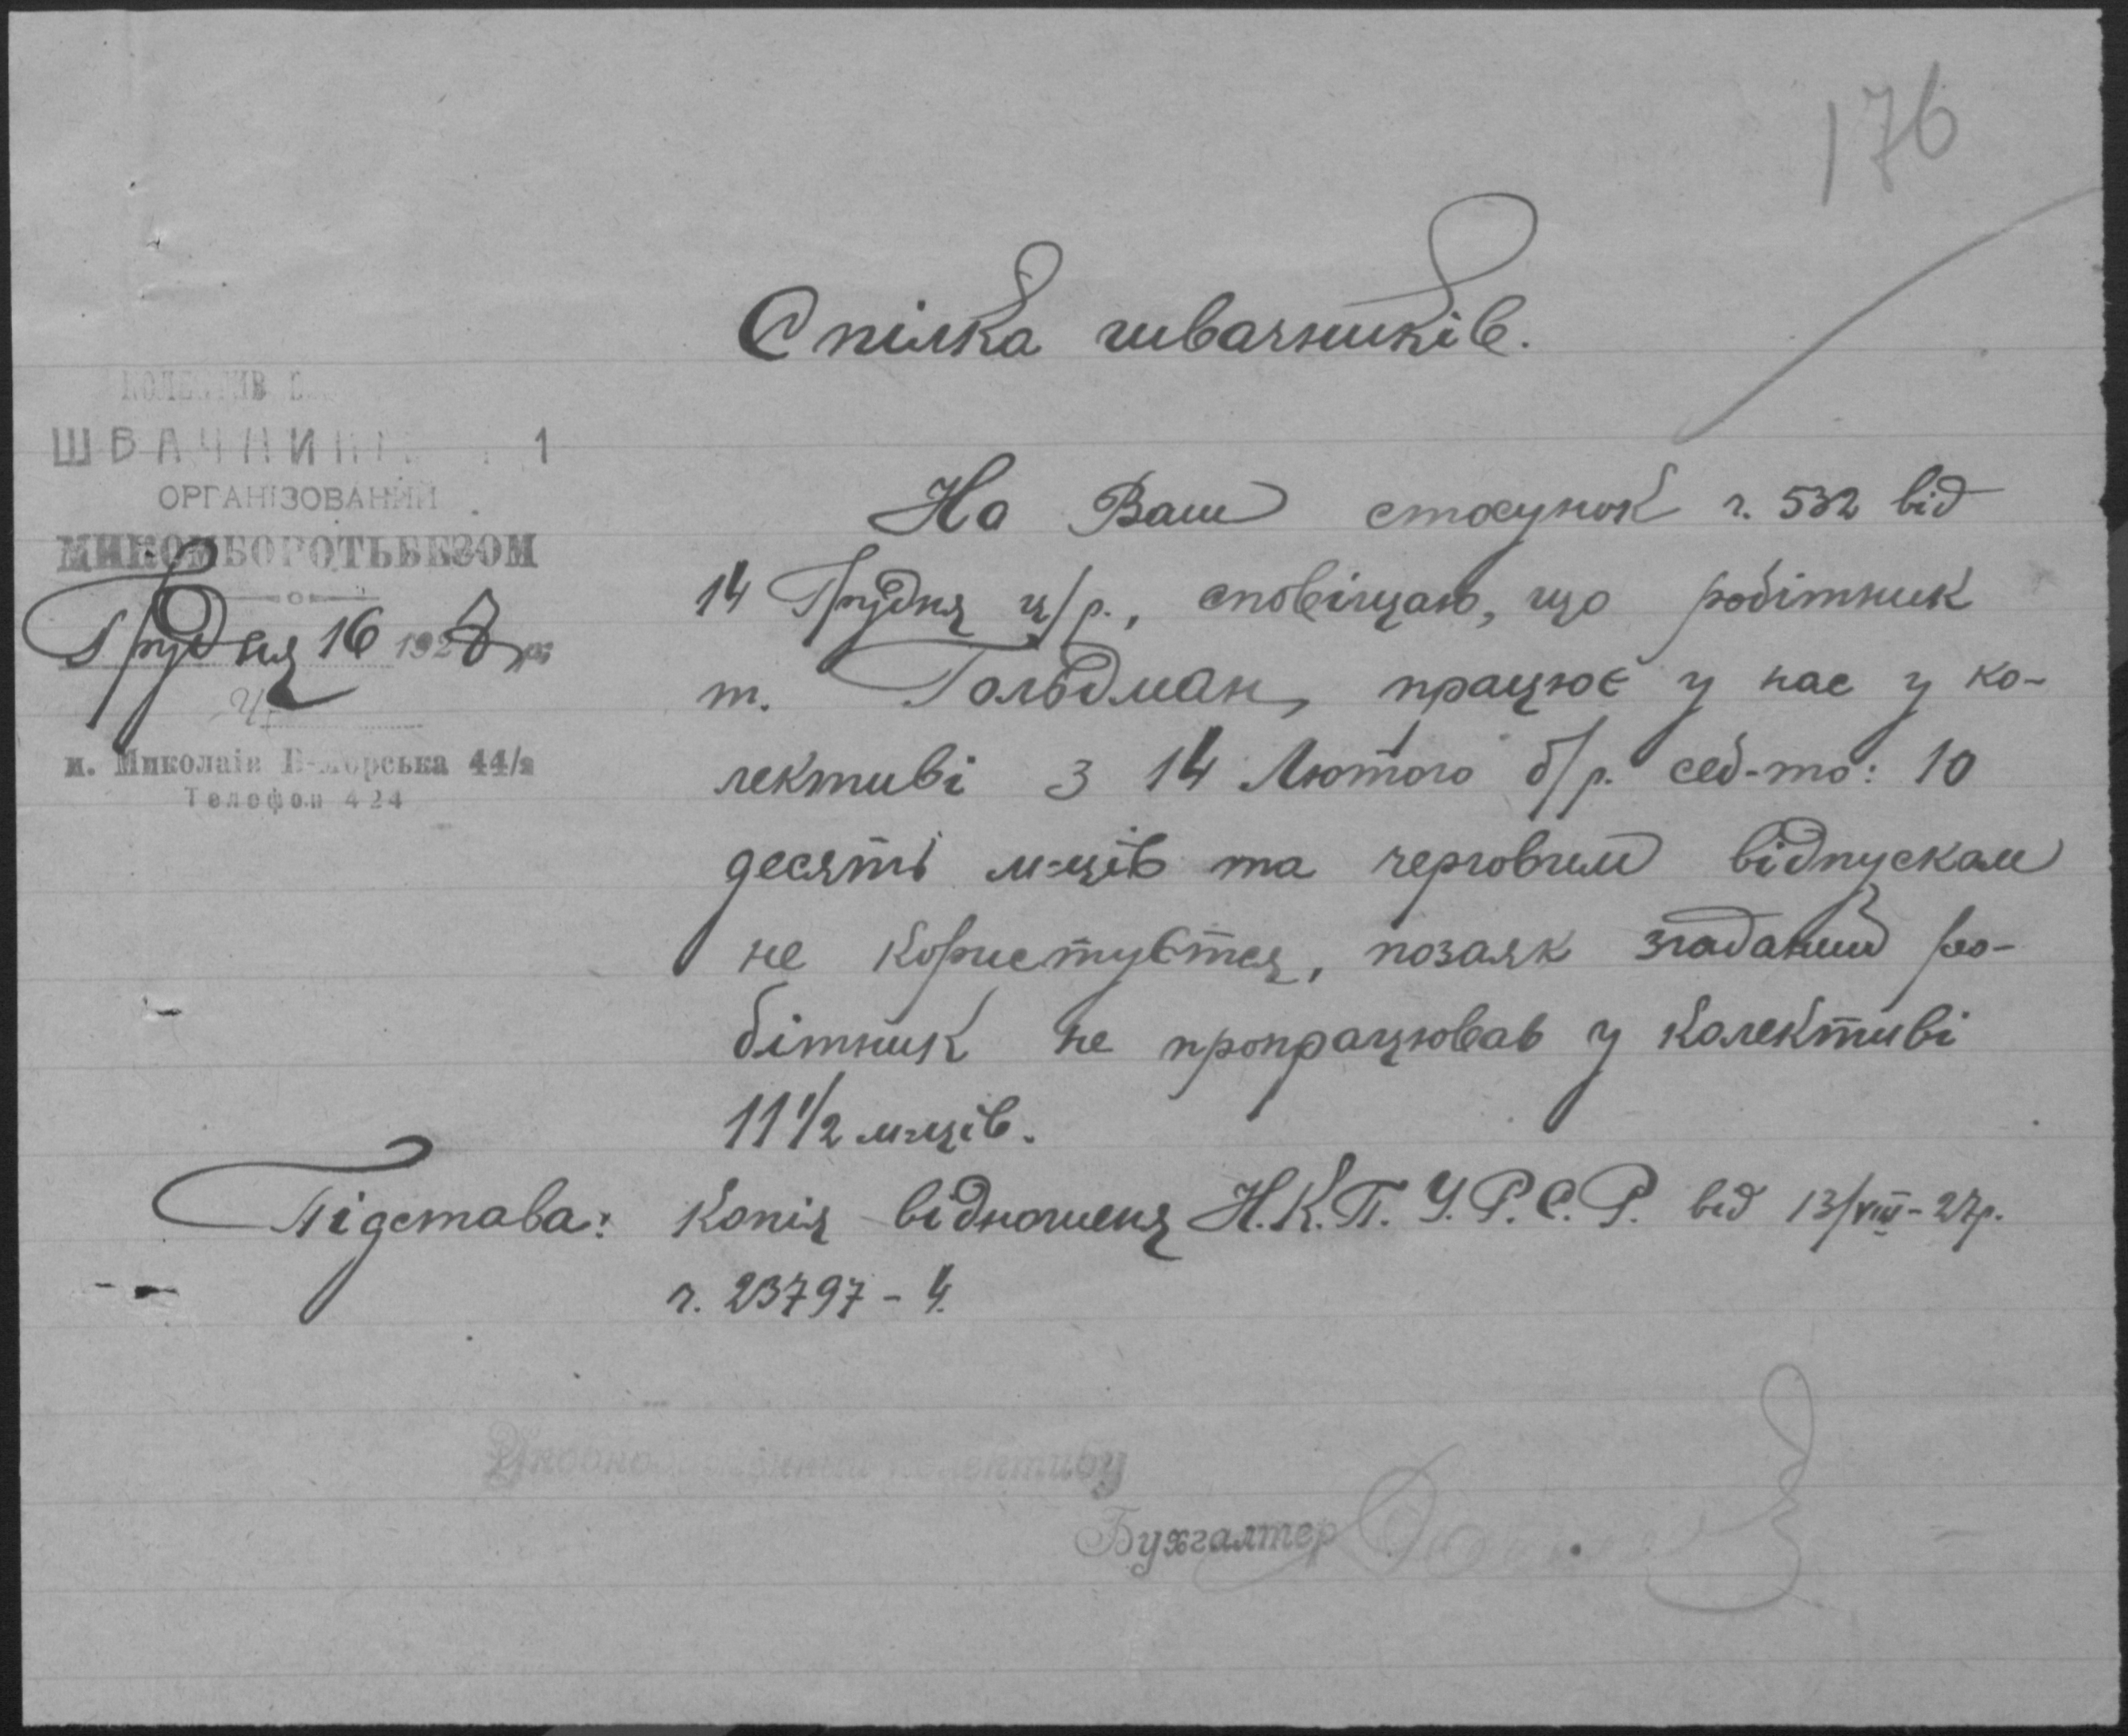 176
Спілка швачників.
ШВАЧНИ 1
ОРГАНІЗОВАНИЙ
МИКОМБОРОТЬБЕЗОМ
Грудня 16 1928 р.
м. Миколаїв 44/а
Телефон 424
На Ваш стосунок ч. 532 від
14 Грудня ц/р., сповіщаю, що робітник
т. Гольдман, працює у нас у ко-
лективі з 14 Лютого б/р. себ-то: 10
десять м-ців та черговим відпускам
не користується, позаяк згаданий ро-
бітник не пропрацював у колективі
11 1/2 м-ців.
Підстава: Копія відношеня Н.К.П. У.Р.С.Р. від 13/VIII-27р.
ч. 23797-4.
колективу
Бухгалтер